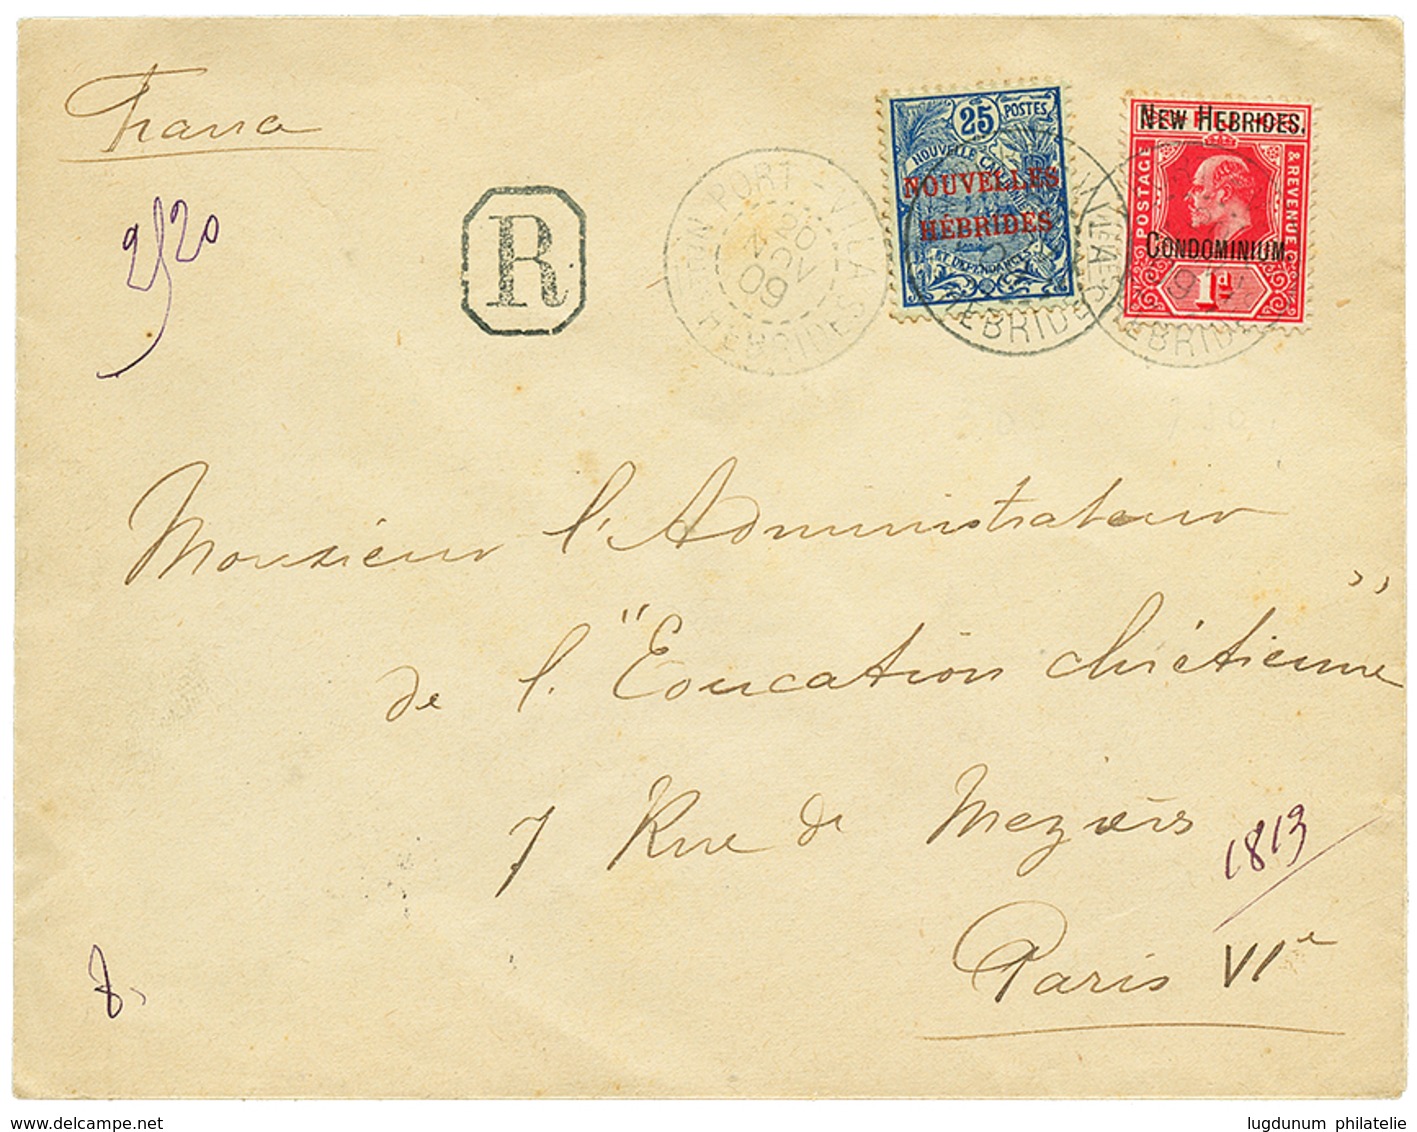 France
2/20
R
NEW PORT-VILA HEBRIDES
20 NOV 09
25 POSTES
NOUVELLE CALÉDONIE
NOUVELLES
HÉBRIDES
ET DÉPENDANCES
NEW HEBRIDES.
POSTAGE & REVENUE
CONDOMINIUM.
1d
HEBRIDES
HEBRIDES
Monsieur l'Administrateur
de l. "Education chrétienne"
7 Rue de Mezières
1813
Paris VIe
8,
delcampe.net
lugdunum philatelie